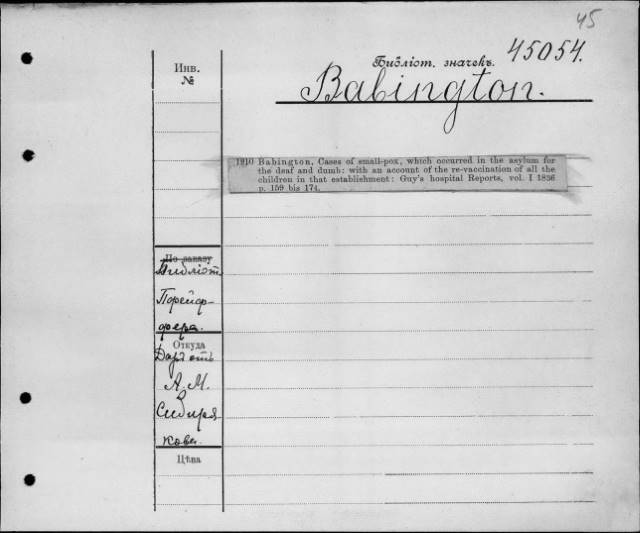 45
Библіот. значекъ. 45054.
Инв.
№
Babington.
1910 Babington, Cases of small-pox, which occurred in the asylum for
the deaf and dumb: with an account of the re-vaccination of all the
children in that establishment: Guy's hospital Reports, vol. I 1836
p. 159 bis 174.
По заказу
Библіот.
Порейф-
фера.
Откуда
Даръ отъ
А. М.
Сибиря
кова.
Цѣна